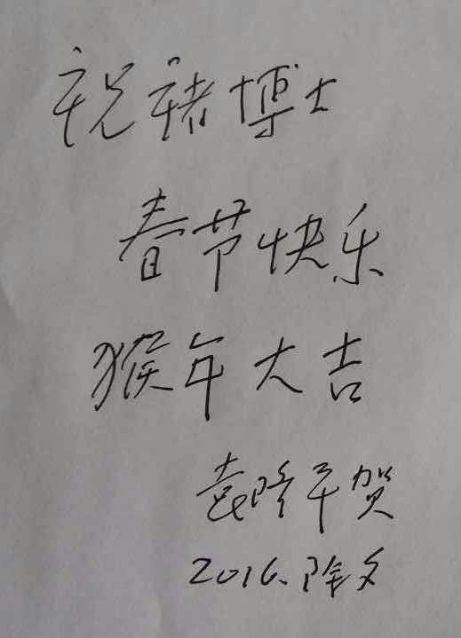 祝禇博士
春节快乐
猴年大吉
袁隆平贺
2016.除夕